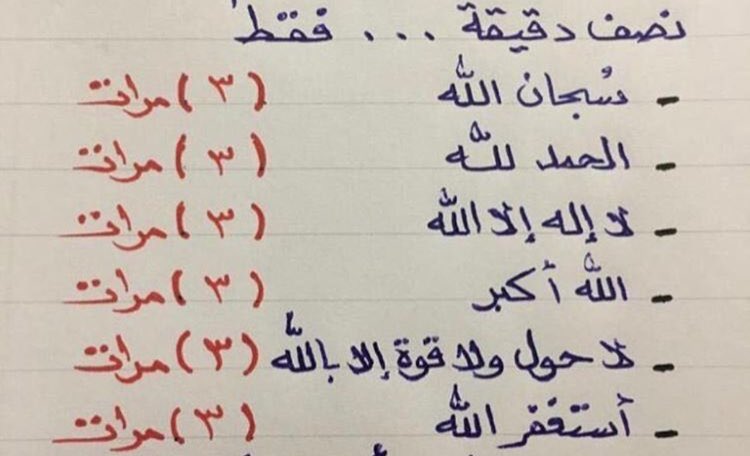 نصف دقيقة ... فقط
- سُبحان الله (٣) مرات
- الحمد للّه (٣) مرات
- لا إله إلا الله (٣) مرات
- الله أكبر (٣) مرات
- لا حول ولا قوة إلا بالله (٣) مرات
- أستغفر الله (٣) مرات